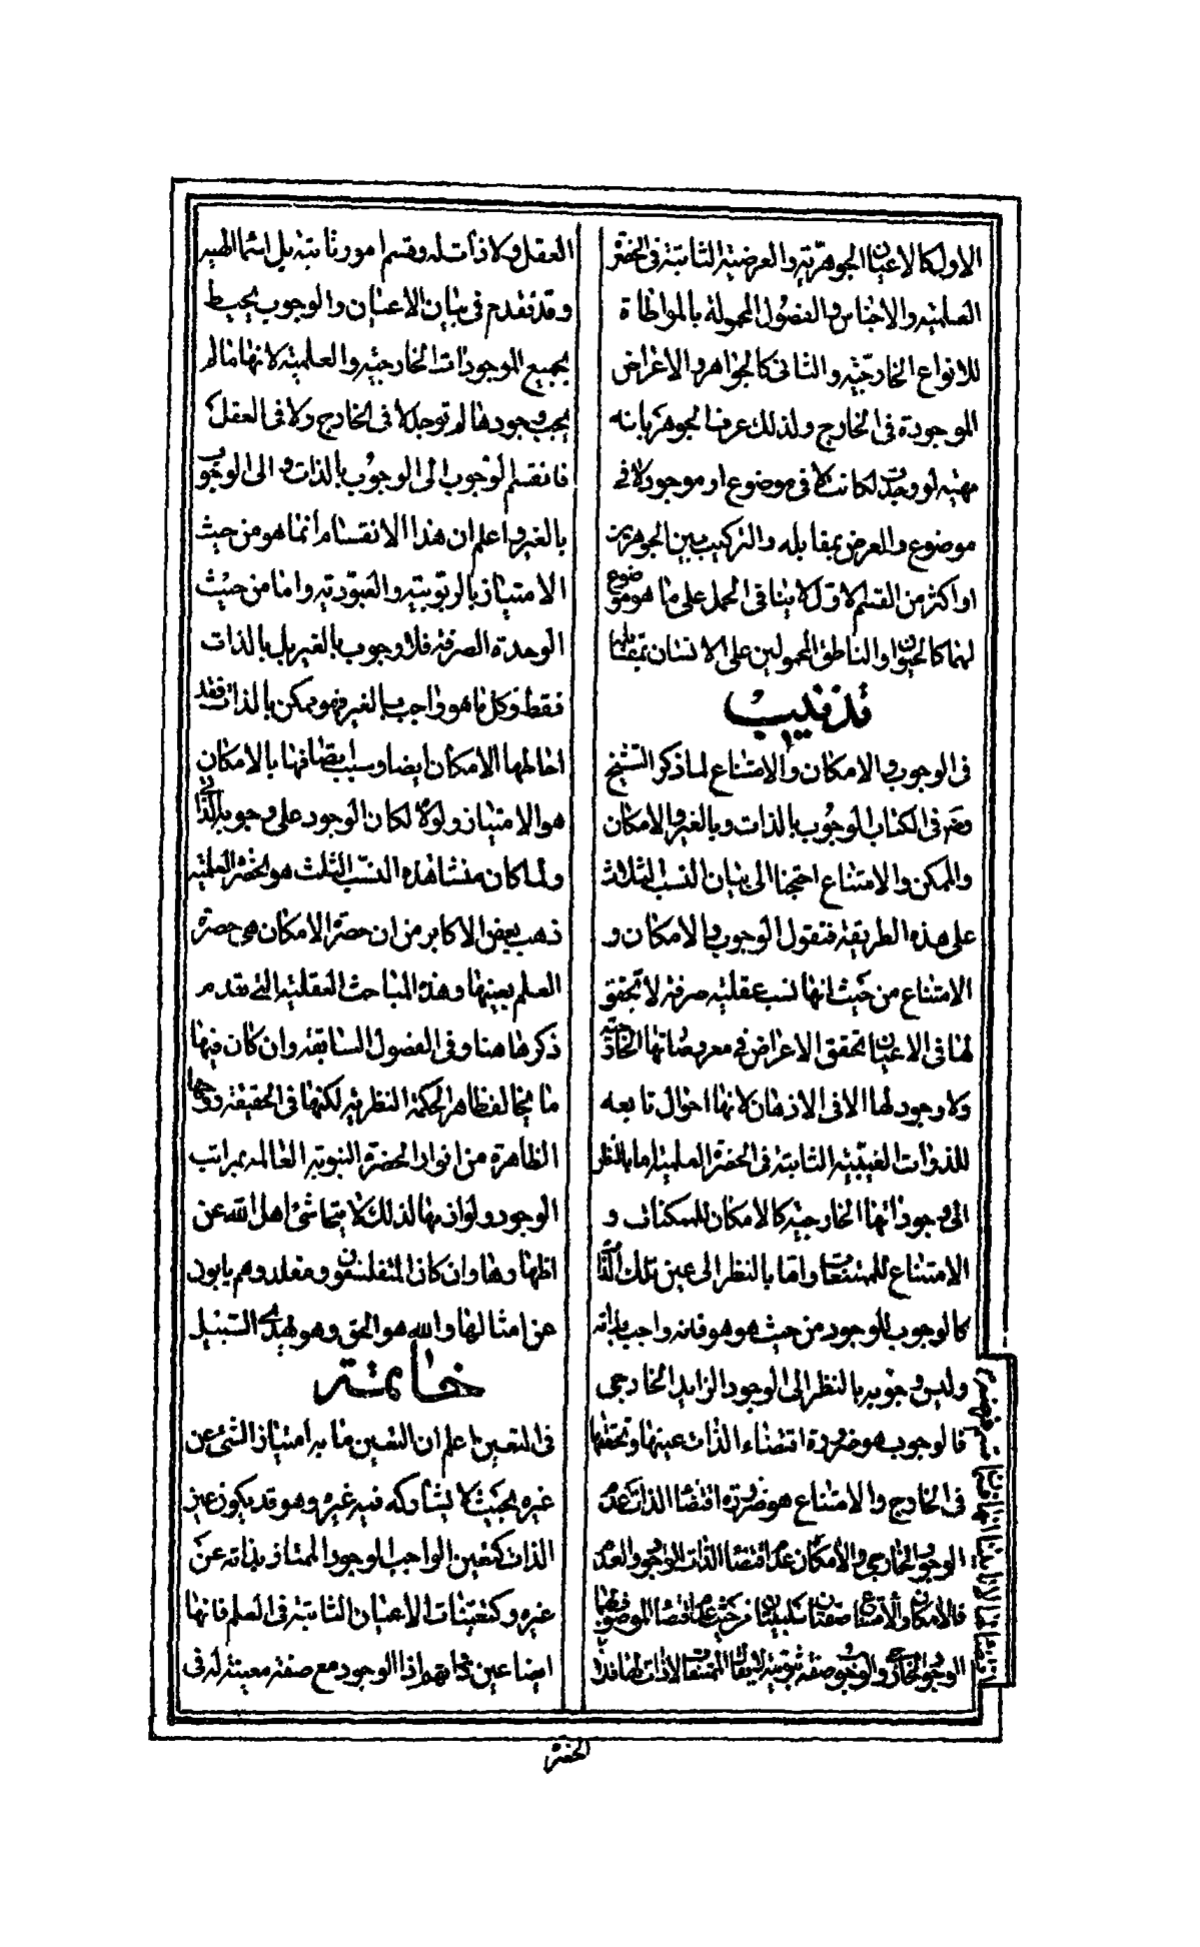 الاول كالاعيان الجوهرية والعرضية الثابتة فى الحضرة
العلمية والاجناس والفصول المحمولة بالمواطاة
للانواع الخارجية والثانى كالجواهر والاعراض
الموجودة فى الخارج ولذلك عرف الجوهر بانه
مهية لو وجدت لكانت لا فى موضوع او موجود لا فى
موضوع والعرض بمقابله والتركيب بين الجوهرين
او اكثر من القسم الاول لا ينافى الحمل على ما هو موضوع
لهما كالحيوان والناطق المحمولين على الانسان بمقابله
تذنيب
فى الوجوب والامكان والامتناع لما ذكر الشيخ
رضه فى الكتاب الوجوب بالذات وبالغير والامكان
والممكن والامتناع احتجنا الى بيان النسب الثلاث
على هذه الطريقة فنقول الوجوب والامكان و
الامتناع من حيث انها نسب عقلية صرفة لا تحقق
لها فى الاعيان تحقق الاعراض فى معروضاتها الخارجية
ولا وجود لها الا فى الاذهان لانها احوال تابعه
للذوات الغيبية الثابتة فى الحضرة العلمية اما بالنظر
الى وجوداتها الخارجية كالامكان للممكنات و
الامتناع للممتنعات واما بالنظر الى عين تلك الذات
كالوجوب للوجود من حيث هو هو فانه واجب بذاته
وليس وجوبه بالنظر الى الوجود الزايد الخارجى
فالوجوب هو ضرورة اقتضاء الذات عينها وتحققها
فى الخارج والامتناع هو ضرورة اقتضاء الذات عدم
الوجود الخارجى والامكان عدم اقتضاء الذات الوجود والعدم
فالامكان والامتناع صفتان سلبيتان من حيث عدم اقتضاء الموصوف بهما
الوجود الخارجى والوجوب صفة ثبوتية لا يقال الممتنعات لا ذات لها
العقل ولا ذات له وقسم امور ثابتة بل اسما الهية
وقد تقدم فى بيان الاعيان والوجوب يحيط
بجميع الموجودات الخارجية والعلمية لانها ما لم
يجب وجودها لم توجد لا فى الخارج ولا فى العقل
فانقسم الوجوب الى الوجوب بالذات والى الوجوب
بالغير واعلم ان هذا الانقسام انما هو من حيث
الامتياز بالربوبية والعبودية واما من حيث
الوحدة الصرفة فلا وجوب بالغير بل بالذات
فقط وكل ما هو واجب بالغير فهو ممكن بالذات فقد
احاطها الامكان ايضا وسبب اتصافها بالامكان
هو الامتياز ولولا لكان الوجود على وجوبه الذاتى
ولما كان منشا هذه النسب الثلث هو الحضرة العلمية
ذهب بعض الاكابر من ان حضرة الامكان هى حضرة
العلم بعينها وهذه المباحث العقلية التى تقدم
ذكرها هنا وفى الفصول السابقة وان كان فيها
ما يخالف ظاهر الحكمة النظرية لكنها فى الحقيقة روحها
الظاهرة من انوار الحضرة النبوية العالمه بمراتب
الوجود ولوازمها لذلك لا يتحاشى اهل الله عن
اظهارها وان كان المتفلسفون ومقلدوهم يابون
عن امثالها والله هو الحق وهو يهدى السبيل
خاتمة
فى التعين اعلم ان التعين ما به امتياز الشئ عن
غيره بحيث لا يشاركه فيه غيره وهو قد يكون عين
الذات كتعين الواجب الوجود الممتاز بذاته عن
غيره وكتعينات الاعيان الثابتة فى العلم فانها
ايضا عين ذاتهم اذ الوجود مع صفة معينة له فى
الحضرة